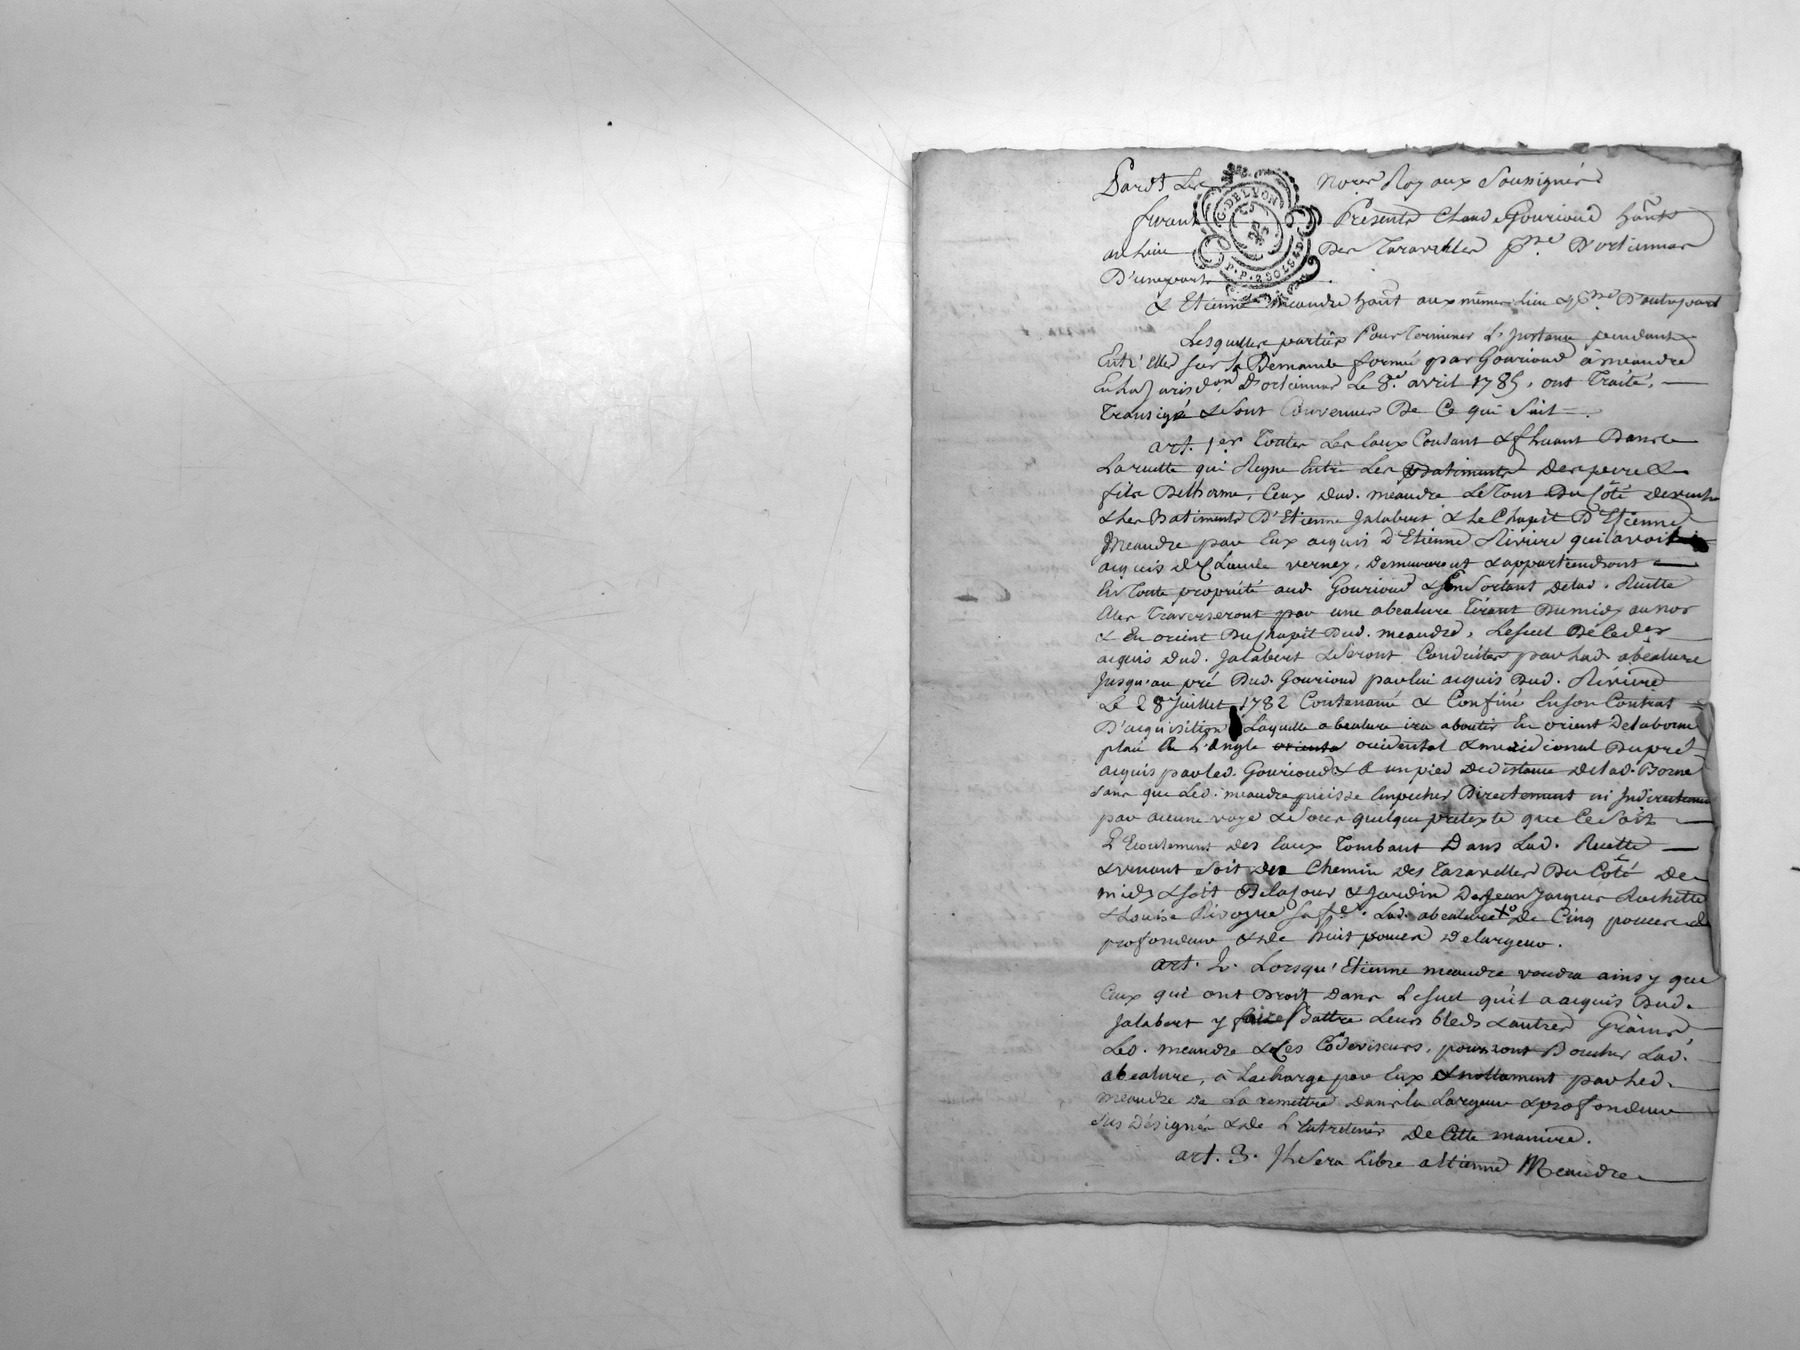 Pardt Les Nores Royaux Soussignés
furent Présents Claude Gourioud habt
au Lieu Des Taravelles D'ortiennas
D'unepart
G. DE LYON
P.P. 2 SOLS 4 D.
& Etienne Meandre habt aux mêmes Lieu & D'autrepart
Lesquelles parties Pour Terminer L'Instance pendante
Entr'Elles sur la Demande formée par Gourioud à meandre
En La Jurisdon D'ortiennas Le 8e avril 1785, ont Traité,
Transigé & sont Convenus De Ce qui Suit
art. 1er Toutes Les Eaux Coulant & fluant Dans
La ruette qui Regne Entre Les Batiments Des pere &
fils Delhorme, Ceux dud. meandre Le Tout Du Côté
& Les Batiments D'Etienne Jalabert & Le Chapit D'Etienne
Meandre par Eux acquis D'Etienne Riviere qui L'avoit
acquis de Claude verney, Demeureront & appartiendront
En Toute propriété aud. Gourioud & En Sortant De lad. Ruette
Elles Traverseront par une abealure Tirant Du midy au nor
& En orient Du Chapit Dud. meandre, Le suel
acquis Dud. Jalabert & Seront Conduites par Lad. abealure
Jusqu'au pré Dud. Gourioud par lui acquis Dud. Riviere
Le 28 Juillet 1782 Contenamé & Confiné En son Contrat
D'acquisition Laquelle abealure ira aboutir En orient De la borne
plaé En L'angle occidental & meridional Du pré
acquis par Led. Gourioud & a un pied De distance De lad. Borne
sans que Led. meandre puisse Empecher Directement ni Indirectement
par aucune voye & Sous quelque pretexte que Ce Soit
L'Ecoulement des Eaux Tombant Dans Lad. Ruette
& venant Soit Du Chemin Des Taravelles Du Côté De
midy & soit De la Cour & Jardin De Jean Jacques Rochette
& Louise Sa fe. Lad. abealure De Cinq pouces de
profondeur & de huit pouces De largeur.
art. 2. Lorsqu'Etienne meandre voudra ainsy que
Ceux qui ont Droit Dans Le suel qu'il a acquis Dud.
Jalabert y faire Battre Leurs bleds & autres Grains
Led. meandre & Les Codeviseurs, pourront Boucher Lad.
abealure, à La charge par Eux & nottament par Led.
Meandre De La remettre Dans La Largeur & profondeur
sus Désignée & de L'Entretenir De Cette maniere.
art. 3. Il Sera Libre a Etienne Meandre